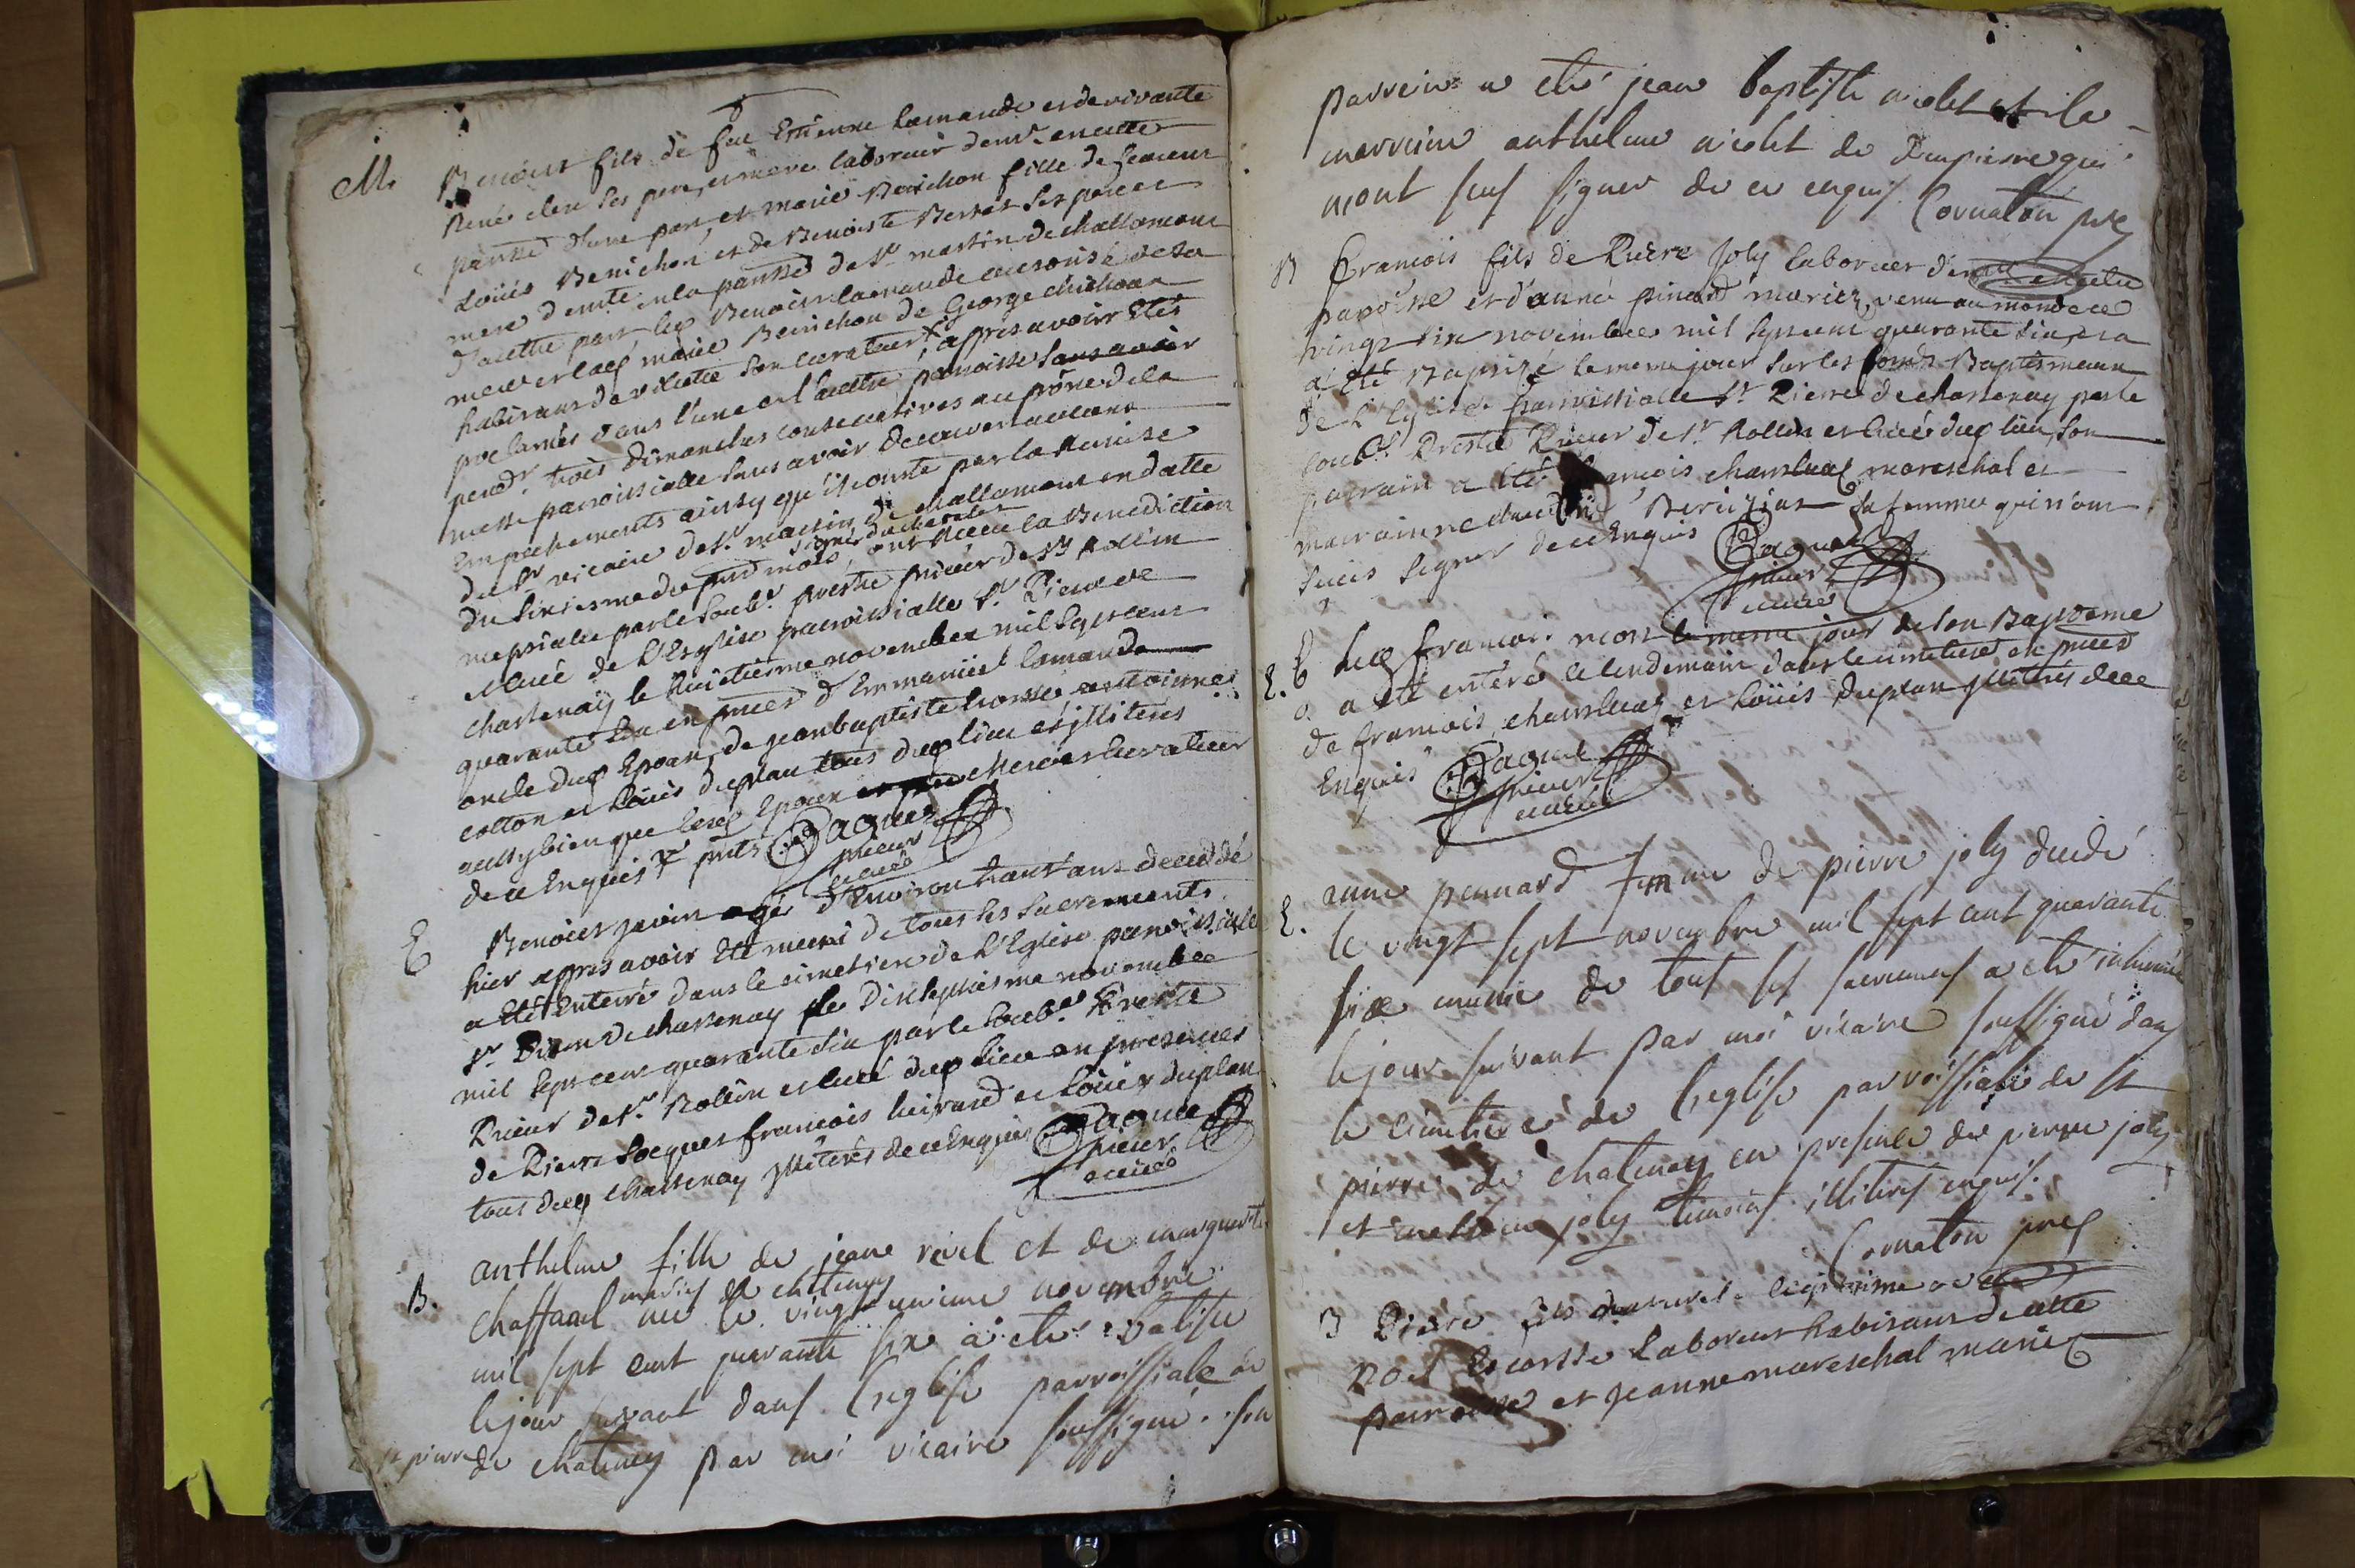 M. Benoist fils de feu Etienne Lamande et de vivante
René clere ses pere et mere laboreur demt. en cette
parroisse d'une part, et marie Benichon fille de feu
Loüis Benichon et de Benoiste ses pere et
mere demte. en la parroisse de st. martin de challamont
d'autre part led Benoist lamande authorisé de sa
mere et lad marie Benichon de George chichoux
habitans de vilette son curateur apres avoir etés
proclamés dans l'une et l'autre parroisse sans avoir
pendt. trois dimanches consecutives au prône de la
messe parroissialle sans avoir decouvert aucuns
Empechements ainsy qu'il conste par la Remise
du Sr. vicaire de st. martin de challamont en datte
signé ducharder
du sixiesme du pnt mois ont Receu la Benediction
nuptialle par le soubs. prestre prieur de st. Rollin
et Curé de L'Esglise parroissialle st. Pierre de
chastenaÿ le huictiesme novembre mil sept cent
quarante six en pnces d'Emmanüel lamande
oncle dud Epoux, de jean baptiste antoinne
cotton et Loüis duplan tous dud lieu et jllitérés
aussy bien que lesd Epoux mere et curateur
de ce Enquis pnts Paquet
prieur
curé
E Benoist janin agé d'Environ trant ans decedé
hier apres avoir Eté muni de tous les sacrements
a Eté Enterré dans le cimetiere de L'Eglise parroissialle
st. Pierre de chastenay le dixseptiesme novembre
mil sept cent quarante six par le soubs. Prestre
Prieur de st. Rollin et Curé dud lieu en presences
de Pierre Socquet francois huirard et Loüis duplan
tous dud chastenay jlliterés de ce Enquis Paquet
prieur
curé
B. anthelme fille de jean revel et de marguerite
mariés de chatenay
chaffard née le vingt unieme novembre
mil sept cent quarante six a eté batisée
le jour suivant dans l'eglise parroissiale de
st pierre de chatenay par moi vicaire soussigné. son
parrein a eté jean baptiste niolet et la
marreine anthelme niolet de Dompierre qui
n'ont seus signer de ce enquis Cornaton pre
B Francois fils de Pierre Joly laboreur demt
parroisse et d'anne pinard mariez, venu au monde ce
vingt six novembre mil sept cent quarante six, et a
a Eté Baptizé le meme jour sur les fonds Baptismeaux
de L'Eglise parroissialle st Pierre de chastenay par le
soubs. Prestre Prieur de st. Rollin et Curé dud lieu, son
parrain a eté francois mareschal et
marainne sa femme qui n'ont
sceüs signer de ce Enquis Paquet
prieur
curé
E. Led francois mort le meme jour de son Baptême
a eté enterré le lendemain dans le cimetiere en pnces
de francois et Loüis duplan jllitérés de ce
Enquis Paquet
prieur
curé
E. anne pennard femme de pierre joly decedé
le vingt sept novembre mil sept cent quarante
six munie de tout ses sacremens a eté inhumée
le jour suivant par moi vicaire soussigné dans
le cimetiere de l'eglise parroissiale de st
pierre de chatenay en presence de pierre joly
et joly temoins illiterés enquis.
Cornaton pre
B Pierre fils naturel legitime a
Noel Ecorsse Laboreur habitant de cette
parroisse et jeanne mareschal mariez